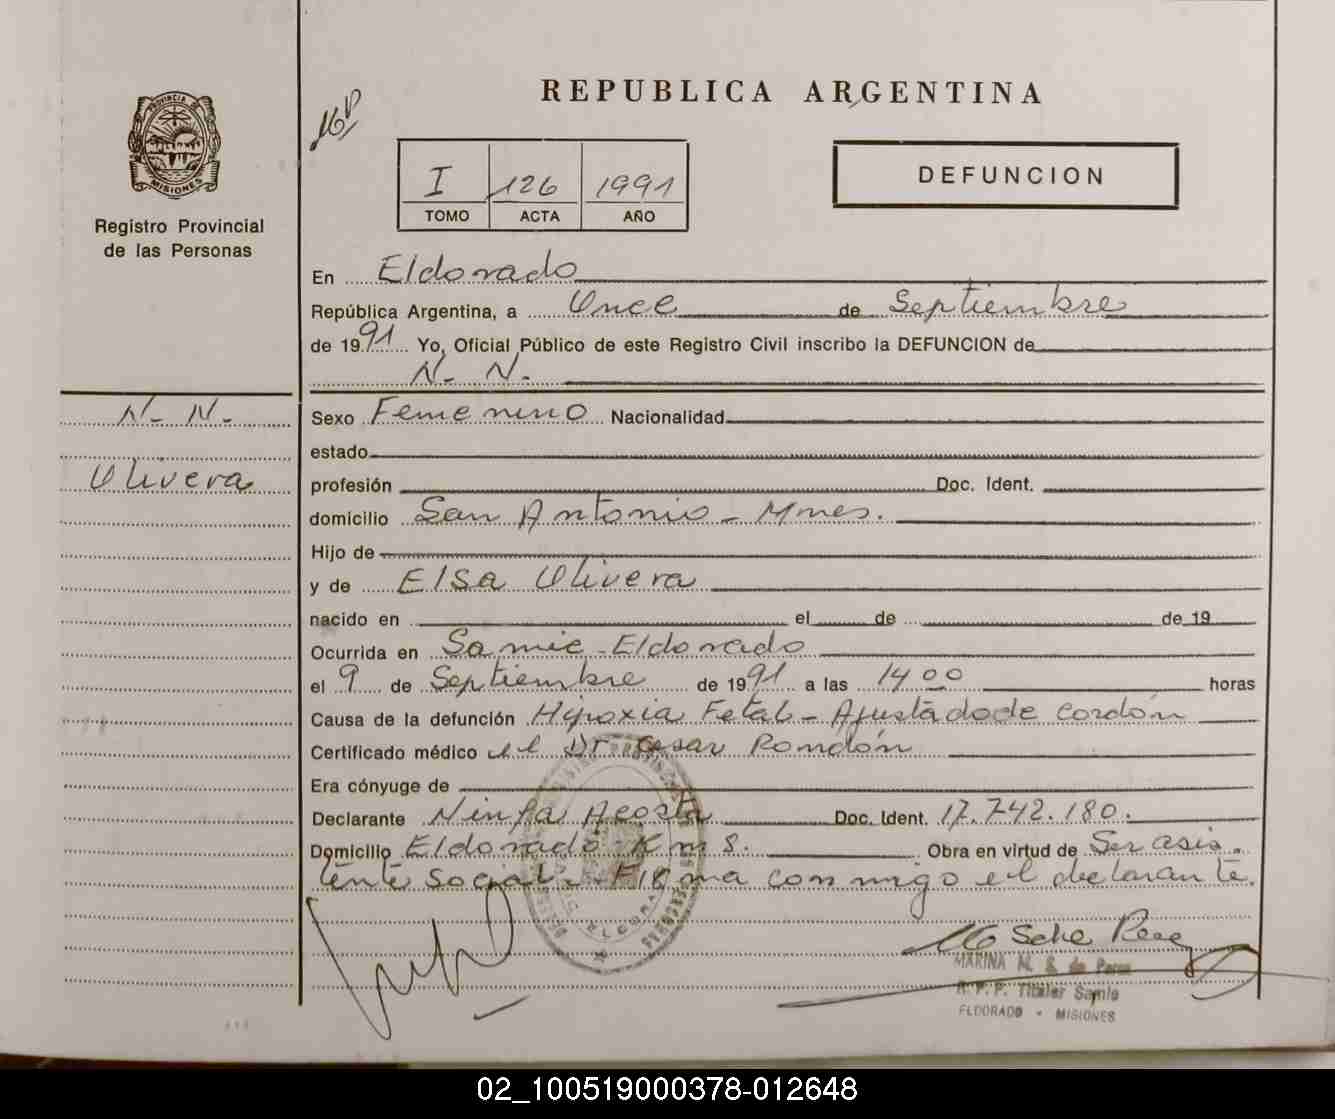 REPUBLICA ARGENTINA
PROVINCIA DE
MISIONES
Registro Provincial
de las Personas
I 126 1991
TOMO ACTA AÑO
DEFUNCION
En Eldorado
República Argentina, a Once de Septiembre
de 1991 Yo, Oficial Público de este Registro Civil inscribo la DEFUNCION de
N. N.
N. N.
Olivera
Sexo Femenino Nacionalidad
estado
profesión Doc. Ident.
domicilio San Antonio - Mnes.
Hijo de
y de Elsa Olivera
nacido en el de de 19
Ocurrida en Samic - Eldorado
el 9 de Septiembre de 1991 a las 14 00 horas
Causa de la defunción Hipoxia Fetal - Ajustado de Cordón
Certificado médico el Dr. Cesar Rondón
Era cónyuge de
Declarante Ninfa Acosta Doc. Ident. 17.742.180.
Domicilio Eldorado Km 8. Obra en virtud de Ser asis-
tente social - Firma conmigo el declarante.
MARINA M. S. de Perez
R. P. P. Titular Samic
ELDORADO - MISIONES
02_100519000378-012648